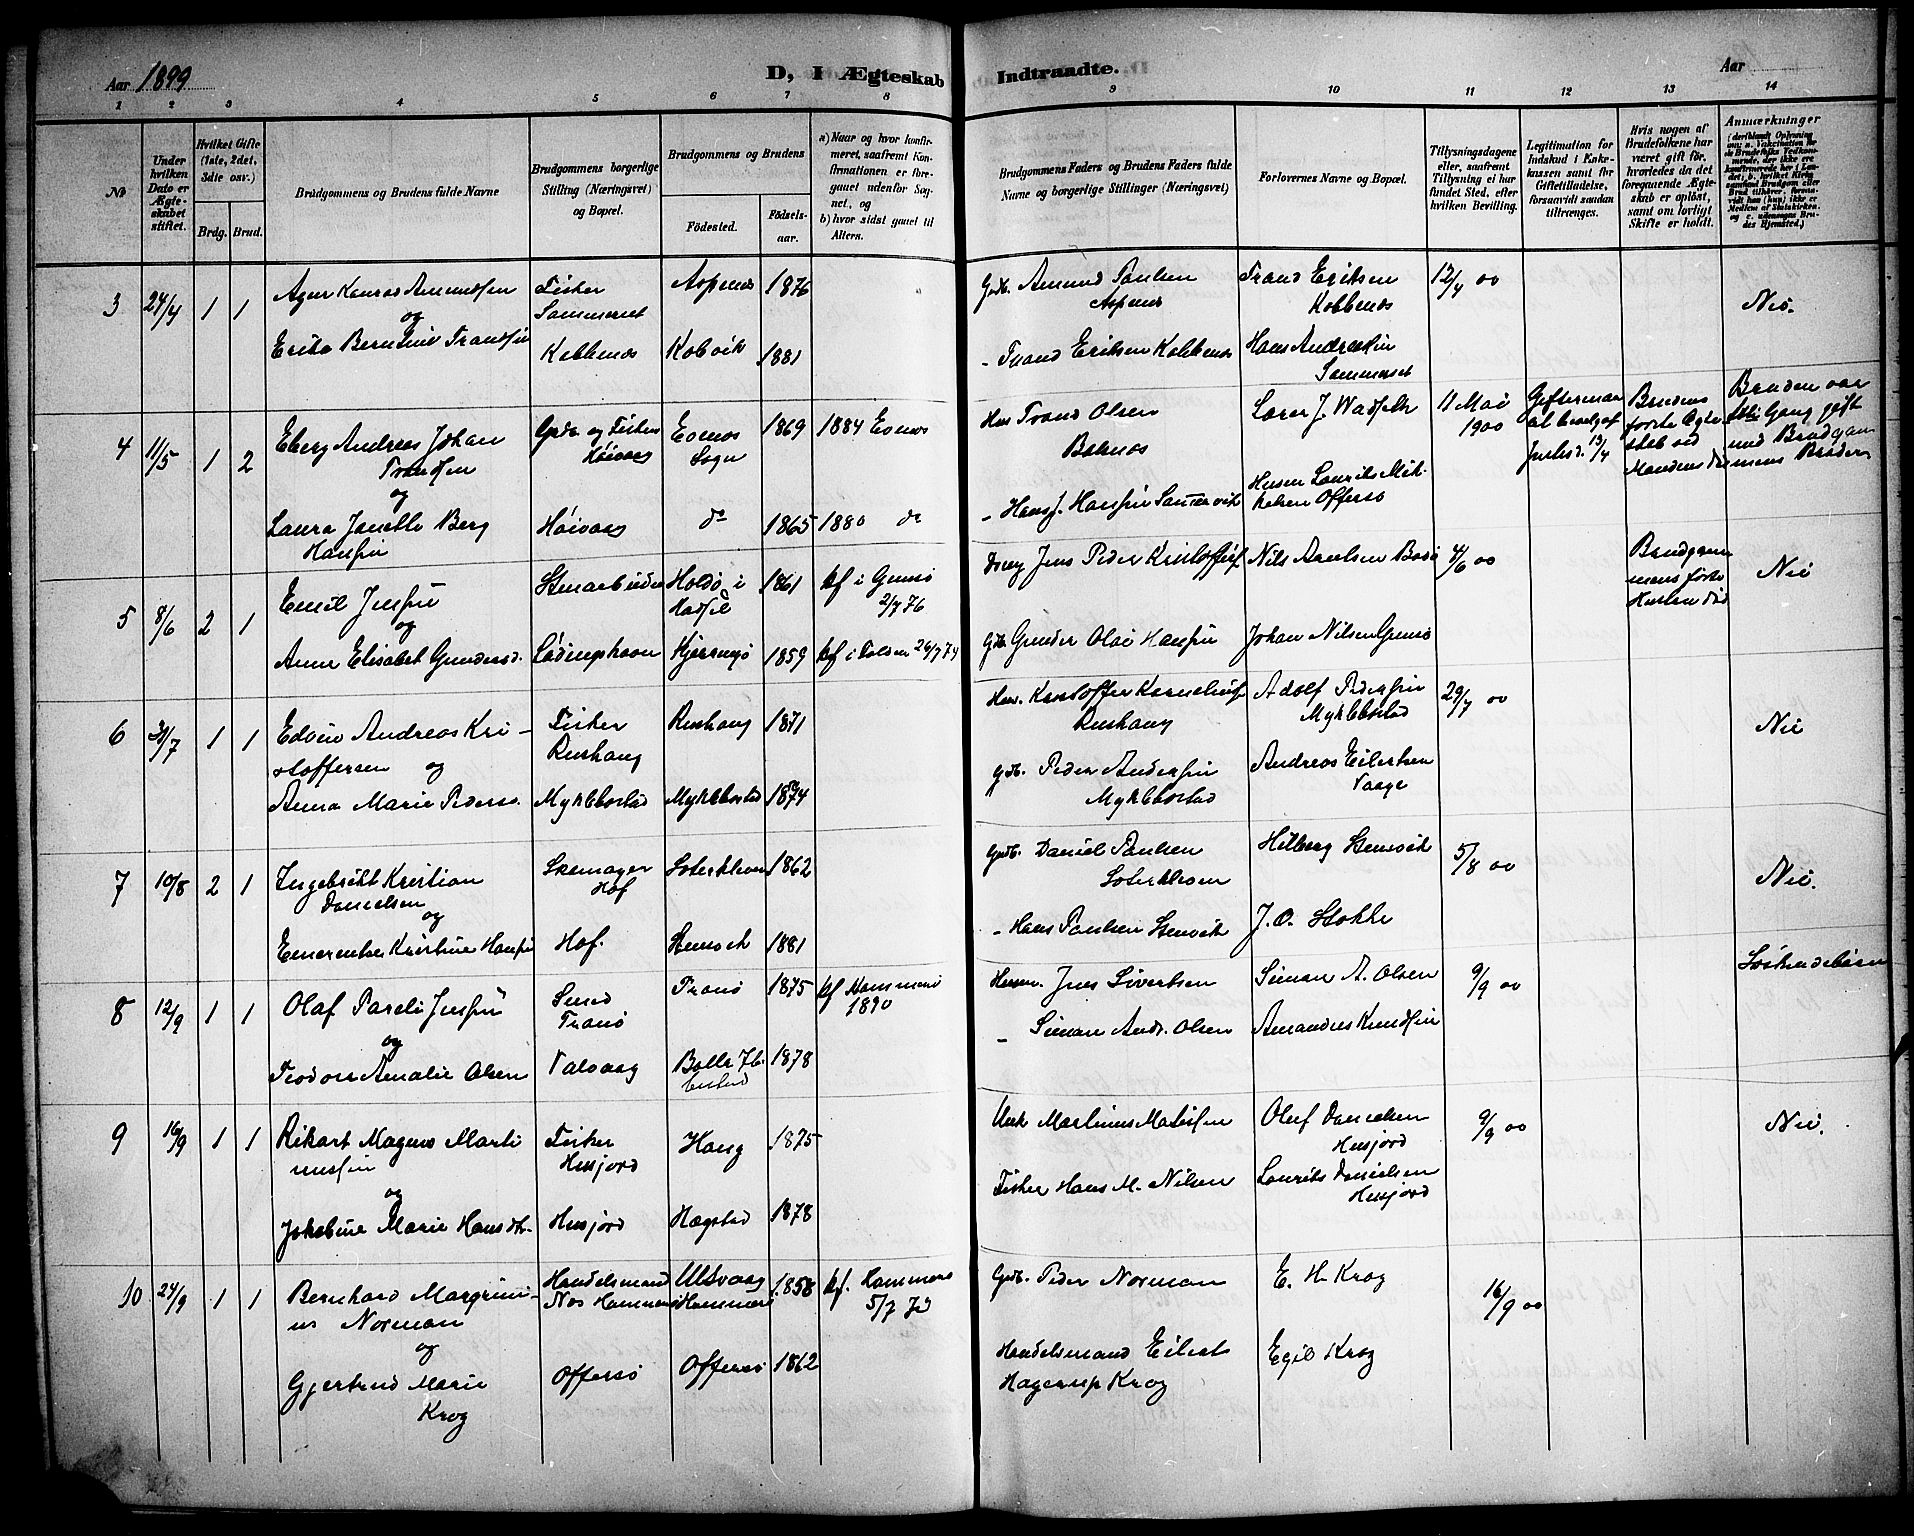 Aar 1899
D, I Ægteskab Indtraadte.
Aar
1 2 3 4 5 6 7 8 9 10 11 12 13 14
No
Under hvilken Dato er Ægteskabet stiftet.
Hvilket Gifte (1ste, 2det, 3die osv.)
Brdg. Brud.
Brudgommens og Brudens fulde Navne
Brudgommens borgerlige Stilling (Næringsvei) og Bopæl.
Brudgommens og Brudens
Födested.
Födselsaar.
a) Naar og hvor konfirmeret, saafremt Konfirmationen er foregaaet udenfor Sognet, og
b) hvor sidst gaaet til Alters.
Brudgommens Faders og Brudens Faders fulde Navne og borgerlige Stillinger (Næringsvei)
Forlovernes Navne og Bopæl.
Tillysningsdagene eller, saafremt Tillysning ei har fundet Sted, efter hvilken Bevilling.
Legitimation for Indskud i Enkekassen samt for Giftetilladelse, forsaavidt saadan tiltrænges.
Hvis nogen af Brudefolkene har været gift för, hvorledes da det foregaaende Ægteskab er oplöst, samt om lovligt Skifte er holdt.
Anmærkninger
3 24/4 1 1
Konrad Amundsen
og
Fisker
Sommerset
Aspenes 1876
Amund Paulsen
Aspenes
Trand Eriksen
Kobbenes
12/4 00
Nei.
Kobbenes Kobvik 1881
- Trand Eriksen Kobbenes
Hans Andreassen
Sommerset
4 11/5 1 2
Eberg Andreas Johan
Trondsen
og
Gbdr og Fisker
Evenes
Sogn
1869 1884 Evenes
Trond Olsen
Lærer J.
11 Mai
1900
Brudens
første Ægte
skab ved
Mandens Død
Bruden var
Gang gift
med Brudgom
mens Broder
Laura Janette Berg
Hansen
do 1865 1880 do
- Hans J. Hansen
Laurits Mik
kelsen Offersø
5 8/6 2 1
Emil Jensen
og
Stenarbeider
Holdø i
Hadsel
1861 kf i Gimsø
2/7 76
Jens Peder Kristoffers.
Nils Bodø
4/6 00
Brudgom
mens første
Hustru død
Nei
Anne Elisabet Gundersd.
Lødingshavn Kjerringø 1859 kf i Folden 26/7 74
Gunder Olai Hansen
Johan Nilsen Gimsø
6 30/7 1 1
Edvin Andreas Kri-
stoffersen og
Fisker
Rushaug
Rushaug 1871
Kristoffer Kornelius
Rushaug
Adolf Pedersen
Myklebostad
29/7 00
Nei
Anna Marie Peders.
Myklebostad Myklebostad 1874
Gdb. Peder Andersen
Myklebostad
Andreas Eilertsen
Vaage
7 10/8 2 1
Ingebrikt Kristian
Danielsen
og
Skomager
Hof
1862
Gdb. Daniel Paulsen
Hilberg Stensvik
5/8 00
Nei.
Emerentse Kristine Hansen
Hof. 1881
- Hans Paulsen
J. O. Stokke
8 12/9 1 1
Olaf Pareli Jensen
og
Smed
Tranø
Tranø 1875 kf Hammerø
1890
Jens Sivertsen
Simon A. Olsen
9/9 00
Søskendebørn
Teodora Amalie Olsen
Valvaag
1878
- Simon Andr. Olsen
Amandus Knudsen
9 16/9 1 1
Rikart Magnus Marti
nussen
og
Fisker
Husjord
Haug 1875
Martinus Matisen
Oluf Danielsen
Husjord
9/9 00
Nei.
Jakobine Marie Hansdtr.
Husjord Hegstad 1878
Fisker Hans M. Nilsen
Laurits Danielsen
Husjord
10 24/9 1 1
Bernhard Margrini-
us Norman
og
Handelsmand
Nes Hammerø
Ulsvaag
Hammerø
1858 kf. Hammerø
5/7 73
Gdb. Peder Norman
E. H. Krog
16/9 00
Gjertrud Marie
Krog
Offersø Offersø 1862
Handelsmand Eilert
Hagerup Krog
Egil Krog